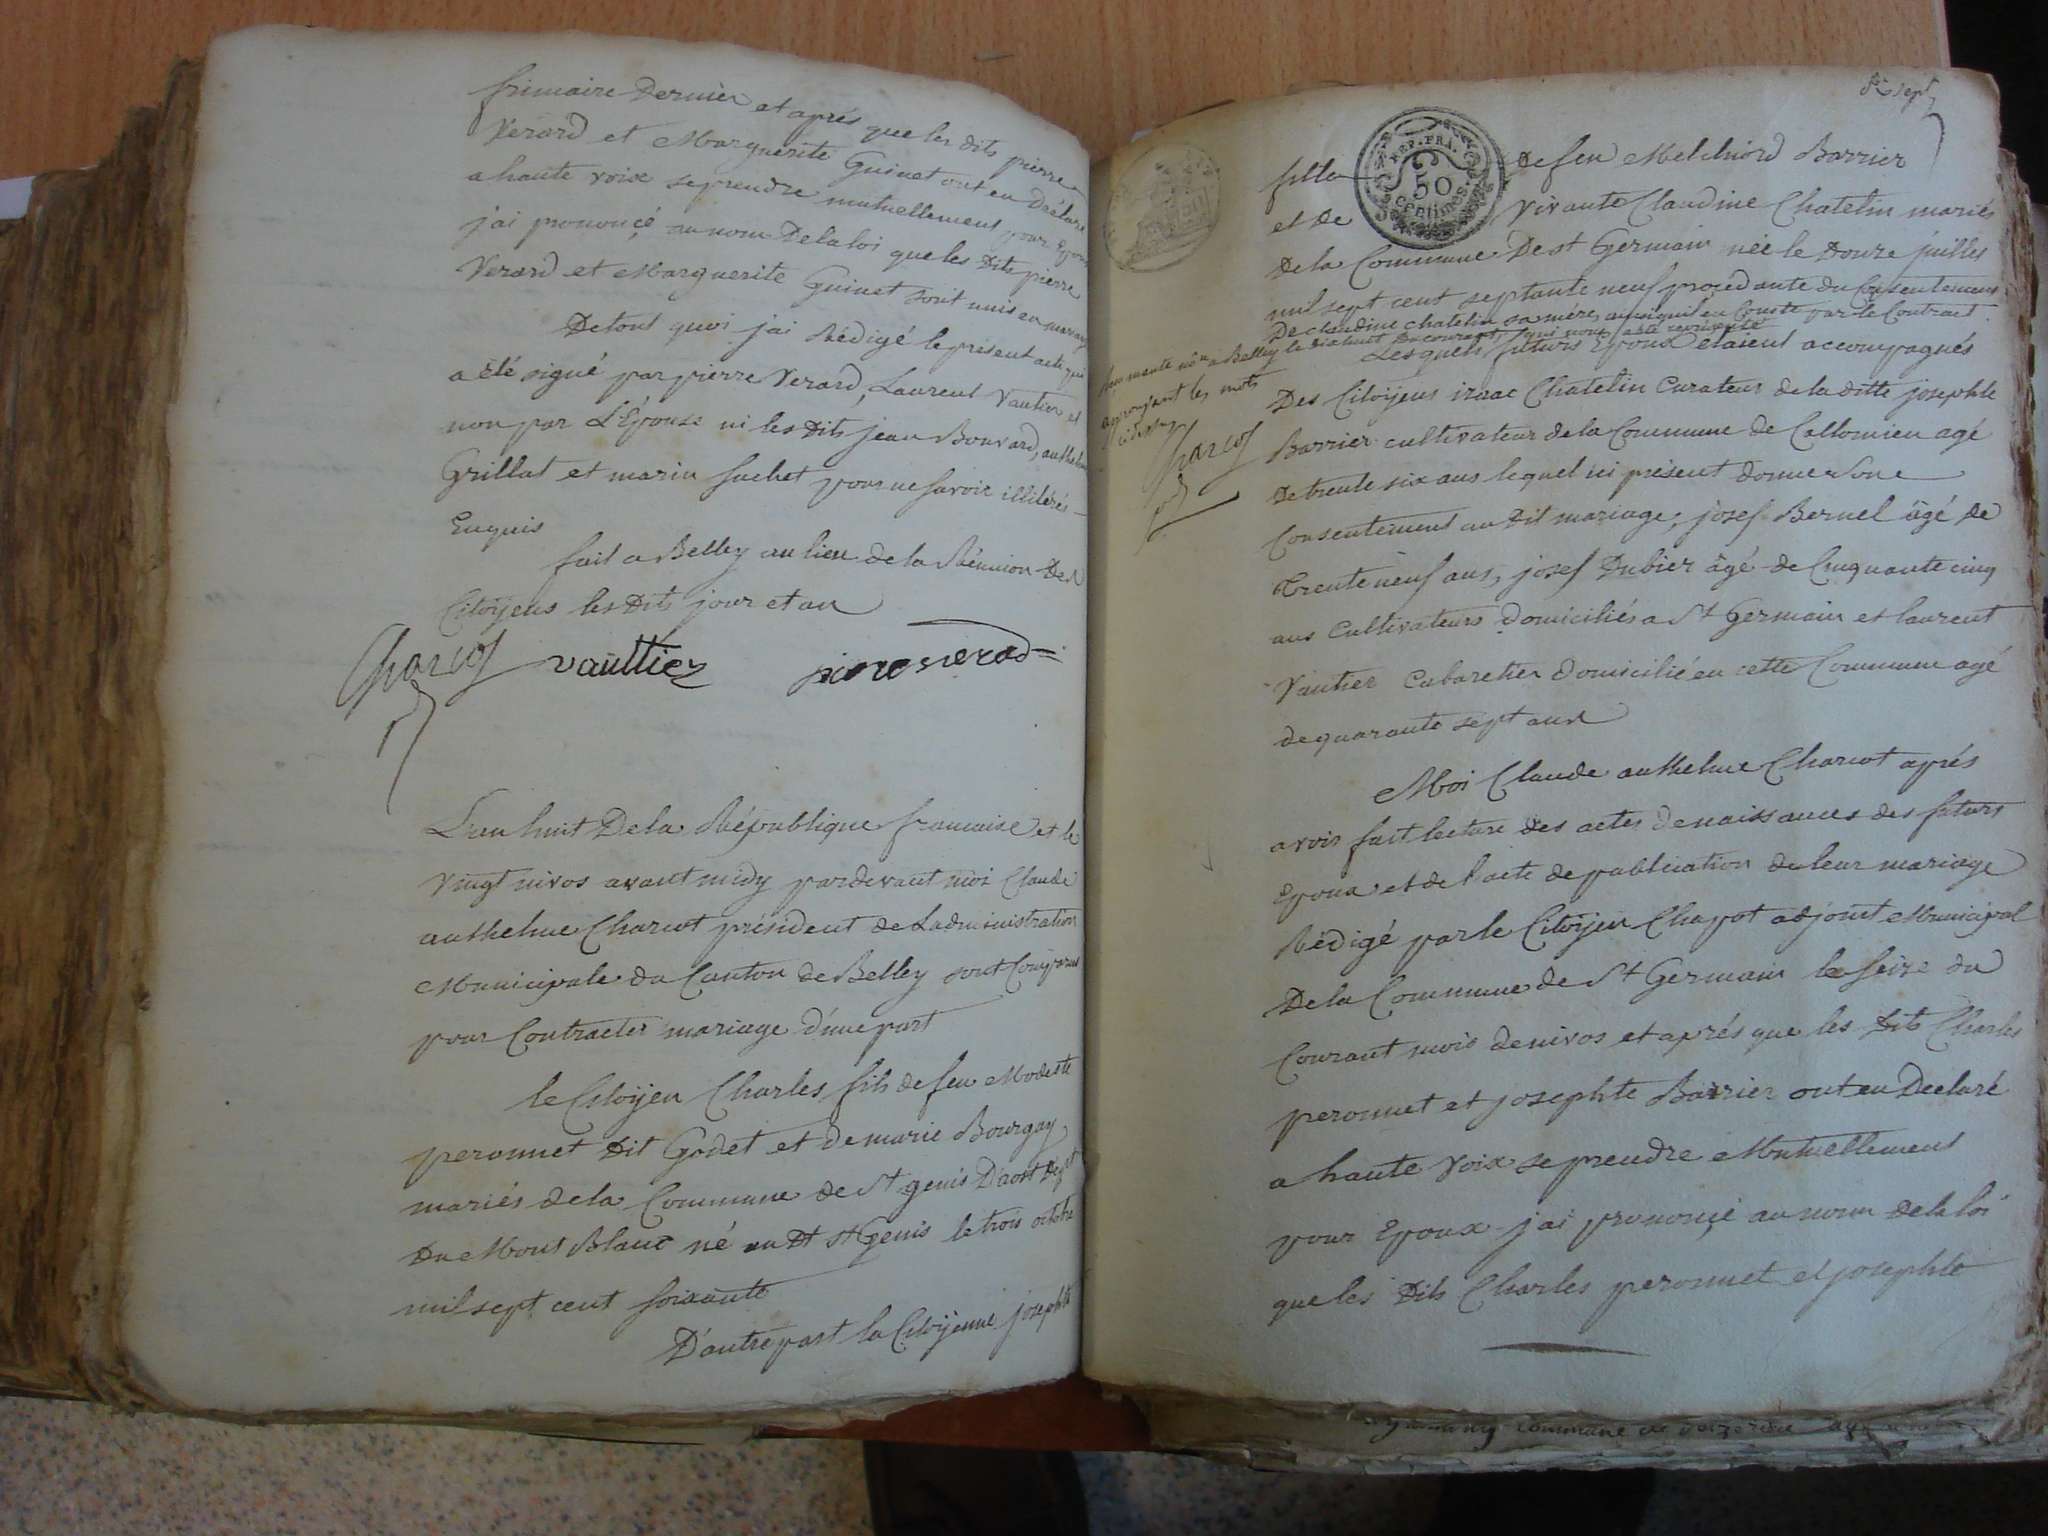 frimaire Dernier et après que les dits pierre
Verard et Marguerite Guinet ont eu Déclaré
a haute voix se prendre mutuellement pour Epoux
j'ai prononcé au nom De la loi que les Dits pierre
Verard et Marguerite Guinet sont unis en mariage
De tout quoi j'ai Rédigé le présent acte qui
a été signé par pierre Verard, Laurent Vautier et
non par L'Epouse ni les Dits jean Bouvard, anthelme
Grillat et marin Suchet pour ne savoir illiterés
Enquis
fait a Belley au lieu de la Réunion Des
Citoÿens les Dits jour et an
Charcot vaultier piere verad
L'an huit De la République francaise et le
Vingt nivos avant midy pardevant moi Claude
anthelme Charcot président de Ladministration
Municipale du Canton de Belley sont Comparus
pour Contracter mariage d'une part
le Citoÿen Charles fils de feu Modeste
peronnet Dit Godet et de marie Bourgay
mariés de la Commune de St genis D'aost Dépt
Du Mont Blanc né au Dt St Genis le trois octobre
mil sept cent soixante
D'autre part la Citoÿenne josephte
Di sept
fille de feu Melchiord Barrier
REP. FRA.
50
centimes
et de Vivante Claudine Chatelin mariés
De la Commune De st Germain née le Douze juillet
mil sept cent septante neuf procédante du Consentement
De claudine chatelin sa mére, ainsi quil en Conste par le Contract
à Belley le dix huit du courant qui nous a été représenté
Lesquels futurs Epoux étaient accompagnés
approuvant les mots
ci dessus
Charcot
Des Citoÿens izaac Chatelin Curateur de la ditte josephte
Barrier cultivateur de la Commune de Collomieu agé
De trente six ans lequel ici présent donne Son
Consentement au Dit mariage, josef Bernel âgé De
Trente neuf ans, josef Dubier âgé de Cinquante cinq
ans Cultivateurs Domiciliés a St Germain et laurent
Vautier Cabaretier Domicilié en cette Commune agé
de quarante sept ans
Moi Claude anthelme Charcot après
avoir fait lecture des actes de naissances des futurs
Epoux et de l'acte de publication de leur mariage
Rédigé par le Citoÿen Chapot adjoint Municipal
De la Commune de St Germain le Seize du
Courant mois de nivos et après que les Dits Charles
peronnet et josephte Barrier ont eu Déclaré
a haute Voix se prendre Mutuellement
pour Epoux j'ai prononçé au nom De la loi
que les Dits Charles peronnet et josephte
commune de